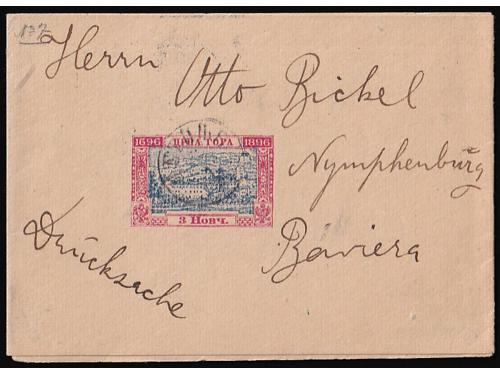 Herrn Otto Bickel
1696 ЦРНА ГОРА 1896
3 Новч.
Nymphenburg
Drucksache
Baviera